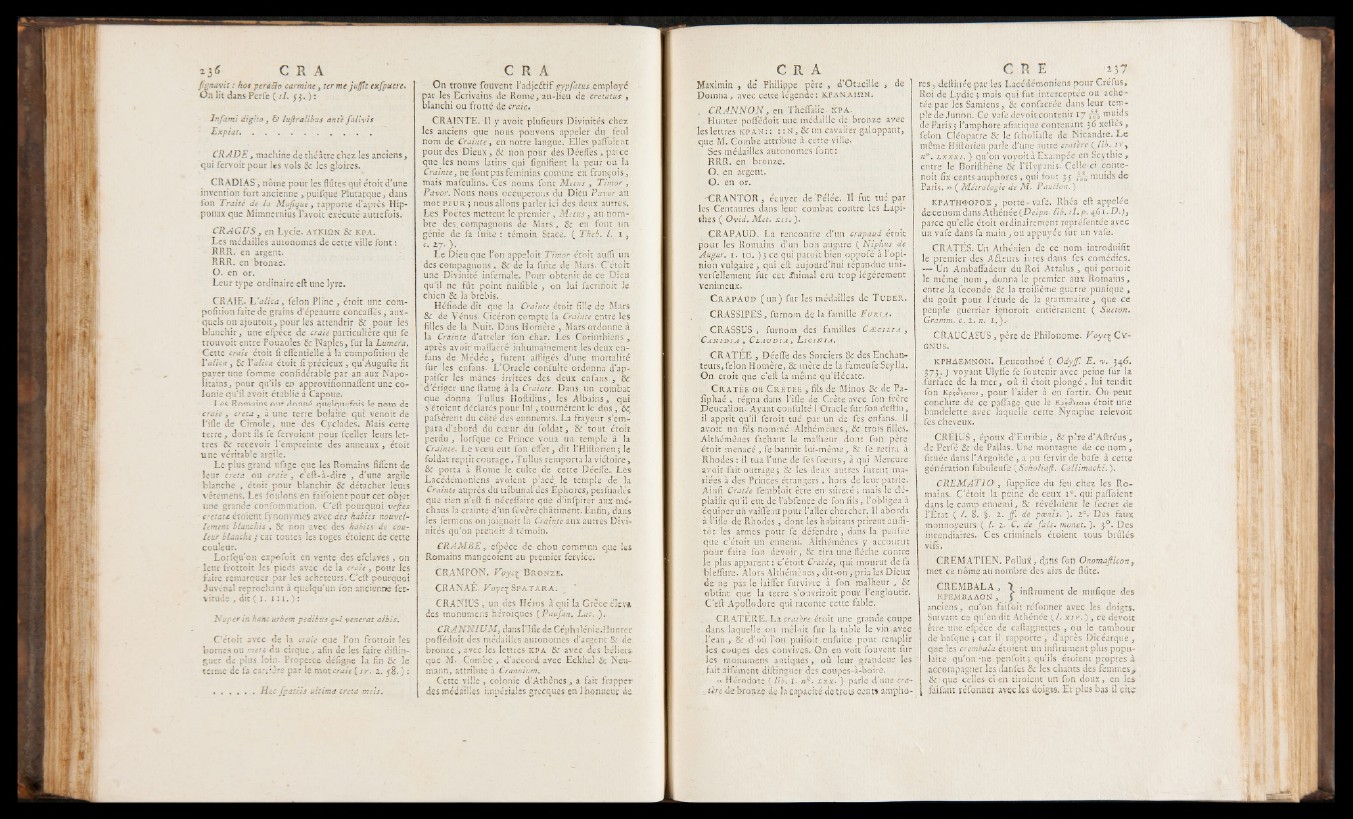 236 C R A
signavit : hos peracto carmine, ter me jussit exspuere.
On lit dans Perse ( II. 33. ) :
Infami digito, & lustralibus antè salivis
Expiat. . . . . . . . . . . .
CRADE, machine de théâtre chez les anciens,
qui servoit pour les vols & les gloires.
CRADIAS, nôme pour les flûtes qui étoit d'une
invention fort ancienne, puisque Plutarque, dans
son Traité de la Musique, rapporte d'après Hip-
ponax que Mimnernius l'avoit exécuté autrefois.
CRAGUS, en Lycie. ΛΥΚΙΩΝ & ΚΡΑ.
Les médailles autonomes de cette ville sont :
RRR. en argent.
RRR. en bronze.
O. en or.
Leur type ordinaire est une lyre.
CRAIE. L'alica, selon Pline, étoit une com-
position faite de grains d'épeautre concassés, aux-
quels on ajoutoit, pour les attendrir & pour les
blanchir, une espèce de craie particulière qui se
trouvoit entre Pouzoles & Naples, sur la Lumera.
Cette craie étoit si essentielle à la composition de
l'alica, & l'alica étoit si précieux, qu'Auguste fit
payer une somme considérable par an aux Napo-
litains, pour qu'ils en approvisionnassent une co-
lonie qu'il avoit établie à Capoue.
Les Romains ont donné quelquefois le nom de
craie, creta, à une terre bolaire qui venoit de
l'isle de Cimole, une des Cyclades. Mais cette
terre, dont ils se servoient pour sceller leurs let-
tres & recevoir l'empreinte des anneaux, étoit
une véritable argile.
Le plus grand usage que les Romains fissent de
leur creta ou craie, c'est-à-dire, d'une argile
blanche, étoit pour blanchir & détacher leurs
vêtemens. Les foulons en faisoient pour cet objet
une grande consommation. C'est pourquoi vestes
cretata étoient synonymes avec des habits nouvel-
lement blanchis, & non avec des habits de cou-
leur blanche ; car toutes les toges étoient de cette
couleur.
Lorsqu'on exposoit en vente des esclaves, on
leur frottoit les pieds avec de la craie, pour les
faire remarquer par les acheteurs. C'est pourquoi
Juvenal reprochant à quelqu'un son ancienne ser-
vitude, dit ( I. 111. ) :
Nuper in hanc urbem pedibus qui venerat albis.
C'étoit avec de la craie que l'on frottoit les
bornes ou meta du cirque, afin de les faire distin-
guer de plus loin. Properce désigne la fin & le
terme de sa carrière par le mot craie ( IV. 2. 58. ) :
. . . . . . Hac spatiis ultima creta meis.
C R A
On trouve souvent l'adjectif gypsatus employé
par les Ecrivains de Rome, au-lieu de cretatus,
blanchi ou frotté de craie.
CRAINTE. Il y avoit plusieurs Divinités chez
les anciens que nous pouvons appeler du seul
nom de Crainte, en notre langue. Elles passoient
pour des Dieux, & non pour des Déesses, parce
que les noms latins qui signifient la peur ou la
Crainte, ne sont pas féminins comme en françois,
mais masculins. Ces noms sont Metus, Timor,
Pavor. Nous nous occuperons du Dieu Pavor au
mot PEUR ; nous allons parler ici des deux autres.
Les Poetes mettent le premier, Metus, au nom-
bre des compagnons de Mars, & en font un
génie de sa suite : témoin Stace. ( Theb. l. 1,
c. 27. ).
Le Dieu que l'on appeloit Timor étoit aussi un
des compagnons, & de la suite de Mars. C'étoit
une Divinité infernale. Pour obtenir de ce Dieu
qu'il ne fût point nuisible, on lui sacrifioit le
chien & la brebis.
Hésiode dit que la Crainte étoit fille de Mars
& de Vénus. Cicéron compte la Crainte entre les
filles de la Nuit. Dans Homère, Mars ordonne à
la Crainte d'atteler son char. Les Corinthiens,
après avoir massacré inhumainement les deux en-
fans de Médée, furent affligés d'une mortalité
sur les enfans. L'Oracle consulté ordonna d'ap-
paiser les mânes irritées des deux enfans, &
d'ériger une statue à la Crainte. Dans un combat
que donna Tullus Hostilius, les Albains, qui
s'étoient déclarés pour lui, tournérent le dos, &
passèrent du côté des ennemis. La frayeur s'em-
para d'abord du cœur du soldat, & tout étoit
perdu, lorsque ce Prince voua un temple à la
Crainte. Le vœu eut son effet, dit l'Historien ; le
soldat reprit courage, Tullus remporta la victoire,
& porta à Rome le culte de cette Déesse. Les
Lacédémoniens avoient placé le temple de la
Crainte auprès du tribunal des Ephores, persuadés
que rien n'est si nécessaire que d'inspirer aux mé-
chans la crainte d'un sévère châtiment. Enfin, dans
les sermens on joignoit la Crainte aux autres Divi-
nités qu'on prenoit à témoin.
CRAMBE, espèce de chou commun que les
Romains mangeoient au premier service.
CRAMPON. Voyez BRONZE.
CRANAÉ. Voyez SPATARA.
CRANIUS, un des Héros à qui la Grèce éleva
des monumens héroïques ( Pausan. Lac. ).
CRANNIUM, dans l'Isle de Céphalénie. Hunter
possédoit des médailles autonomes d'argent & de
bronze, avec les lettres ΚΡΑ & avec des béliers
que M. Combe, d'accord avec Eckhel & Neu-
mann, attribue à Crannium.
Cette ville, colonie d'Athênes, a fait frapper
des médailles impériales grecques en l'honneur de
C R A
Maximin, de Philippe père, d'Otacille, de
Donna, avec cette légende : ΚΡΑΝΑΙΩΝ.
CRANNON, en Thessalie. ΚΡΑ.
Hunter possédoit une médaille de bronze avec
les lettres ΚΡΑΝ : : ΙΙΝ, & un cavalier galoppant,
que M. Combe attribue à cette ville.
Ses médailles autonomes sont :
RRR. en bronze.
O. en argent.
O. en or.
CRANTOR, écuyer de Pélée. Il fut tué par
les Centaures dans leur combat contre les Lapi-
thes ( Ovid. Met. XII. ).
CRAPAUD. La rencontre d'un crapaud étoit
pour les Romains d'un bon augure ( Niphus de
Augur. 1. 10. ) ; ce qui paroît bien opposé à l'opi-
nion vulgaire, qui est aujourd'hui répandue uni-
versellement sur cet animal cru trop légérement
venimeux.
CRAPAUD (un) sur les médailles de TUDER.
CRASSIPES, surnom de la famille FURIA.
CRASSUS, surnom des familles CÆCILIA,
CANIDIA, CLAUDIA, LICINIA.
CRATÉE, Déesse des Sorciers & des Enchan-
teurs, selon Homère, & mère de la fameuse Scylla.
On croit que c'est la même qu'Hécate.
CRATÉE ou CRETÉE, fils de Minos & de Pa-
siphaé, régna dans l'isle de Crète avec son frère
Deucalion. Ayant consulté l'Oracle sur son destin,
il apprit qu'il seroit tué par un de ses enfans. Il
avoit un fils nommé Althémènes, & trois filles.
Althémènes sachant le malheur dont son père
étoit menacé, se bannit lui-même, & se retira à
Rhodes : il tua l'une de ses sœurs, à qui Mercure
avoit fait outrage ; & les deux autres furent ma-
riées à des Princes étrangers, hors de leur patrie.
Ainsi Cratée sembloit être en sûreté ; mais le dé-
plaisir qu'il eut de l'absence de son fils, l'obligea à
équiper un vaisseau pour l'aller chercher. Il aborda
à l'isle de Rhodes, dont les habitans prirent aussi-
tôt les armes pour se défendre, dans la pensée
que c'étoit un ennemi. Althémènes y accourut
pour faire son devoir, & tira une fléche contre
le plus apparent : c'étoit Cratée, qui mourut de sa
blessure. Alors Althémènes, dit-on, pria les Dieux
de ne pas le laisser survivre à son malheur, &
obtint que la terre s'ouvriroit pour l'engloutir.
C'est Apollodore qui raconte cette fable.
CRATÈRE. La cratère étoit une grande coupe
dans laquelle on mêloit sur la table le vin avec
l'eau, & d'où l'on puisoit ensuite pour remplir
les coupes des convives. On en voit souvent sur
les monumens antiques, où leur grandeur les
fait aisément distinguer des coupes-à-boire.
« Hérodote ( lib. 1. n°. LXX. ) parle d'une cra-
tère de bronze de la capacité de trois cents ampho-
C R E 237
res, destinée par les Lacédémoniens pour Crésus,
Roi de Lydie ; mais qui fut interceptée ou ache-
tée par les Samiens, & consacrée dans leur tem-
ple de Junon. Ce vase devoit contenir 17 muids
de Paris ; l'amphore asiatique contenant 36 xestès,
selon Cléopatre & le scholiaste de Nicandre. Le
même Historien parle d'une autre cratère ( lib. IV,
n°. LXXXI. ) qu'on voyoit à Exampée en Scythie,
entre le Boristhène & l'Hypanis. Celle-ci conte-
noit six cents amphores, qui font 35 muids de
Paris. » ( Métrologie de M. Paucton. )
ΚΡΑΤΗΦΟΡΟΣ, porte-vase. Rhéa est appelée
de ce nom dans Athénée ( Deipn. lib. XI. p. 461. D. ),
parce qu'elle étoit ordinairement représentée avec
un vase dans sa main, ou appuyée sur un vase.
CRATÈS. Un Athénien de ce nom introduisit
le premier des Acteurs ivres dans ses comédies.
— Un Ambassadeur du Roi Attalus, qui portoit
le même nom, donna le premier aux Romains,
entre la seconde & la troisième guerre punique,
du goût pour l'étude de la grammaire, que ce
peuple guerrier ignoroit entièrement ( Sueton.
Gramm. c. 2. n. 1. ).
CRAUCASUS, père de Philonome. Voyez CY-
GNUS.
ΚΡΗΔΕΜΝΟΝ. Leucothoé ( Odyss. E. v. 346.
373. ) voyant Ulysse se soutenir avec peine sur la
surface de la mer, où il étoit plongé, lui tendit
son Κρηδεμνον, pour l'aider à en sortir. On peut
conclure de ce passage que le Κρηδεμνον étoit une
bandelette avec laquelle cette Nymphe relevoit
ses cheveux.
CREIUS, époux d'Euribie, & père d'Astréus,
de Persé & de Pallas. Une montagne de ce nom,
située dans l'Argolide, a pu servir de base à cette
génération fabuleuse ( Scholiast. Callimachi. ).
CREMATIO, supplice du feu chez les Ro-
mains. C'étoit la peine de ceux 1°. qui passoient
dans le camp ennemi, & révéloient le secret de
l'État ( l. 8. §. 2. ff. de pœnis. ). 2°. Des faux
monnoyeurs ( l. 2. C. de fals. monet. ). 3°. Des
incendiaires. Ces criminels étoient tous brûlés
vifs.
CREMATIEN. Pollux, dans son Onomasticon,
met ce nôme au nombre des airs de flûte.
CREMBALA, } instrument de musique des
ΚΡΕΜΒΑΛΟΝ,
anciens, qu'on faisoit résonner avec les doigts.
Suivant ce qu'en dit Athénée ( l. XIV. ), ce devoit
être une espèce de castagnettes, ou le tambour
de basque ; car il rapporte, d'après Dicéarque,
que les crembala étoient un instrument plus popu-
laire qu'on ne pensoit ; qu'ils étoient propres à
accompagner les danses & les chants des femmes,
& que celles-ci en tiroient un son doux, en les
faisant résonner avec les doigts. Et plus bas il cite